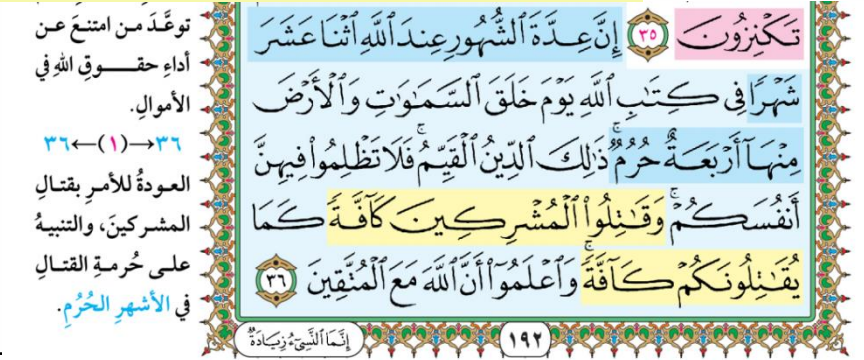 تَكْنِزُونَ ٣٥ إِنَّ عِدَّةَ ٱلشُّهُورِ عِندَ ٱللَّهِ ٱثْنَا عَشَرَ
شَهْرًا فِى كِتَٰبِ ٱللَّهِ يَوْمَ خَلَقَ ٱلسَّمَٰوَٰتِ وَٱلْأَرْضَ
مِنْهَآ أَرْبَعَةٌ حُرُمٌ ۚ ذَٰلِكَ ٱلدِّينُ ٱلْقَيِّمُ ۚ فَلَا تَظْلِمُوا۟ فِيهِنَّ
أَنفُسَكُمْ ۚ وَقَٰتِلُوا۟ ٱلْمُشْرِكِينَ كَآفَّةً كَمَا
يُقَٰتِلُونَكُمْ كَآفَّةً ۚ وَٱعْلَمُوٓا۟ أَنَّ ٱللَّهَ مَعَ ٱلْمُتَّقِينَ ٣٦
١٩٢
إِنَّمَا ٱلنَّسِىٓءُ زِيَادَةٌ
توعَّدَ من امتنعَ عن
أداءِ حقوقِ اللهِ في
الأموالِ.
٣٦←(١)→٣٦
العودةُ للأمرِ بقتالِ
المشركينَ، والتنبيهُ
على حُرمةِ القتالِ
في الأشهرِ الحُرُمِ.